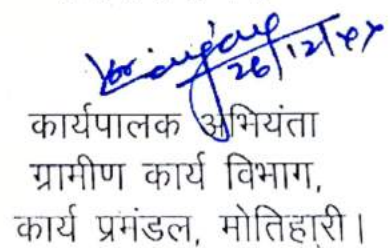 26/12/
कार्यपालक अभियंता
ग्रामीण कार्य विभाग,
कार्य प्रमंडल, मोतिहारी।